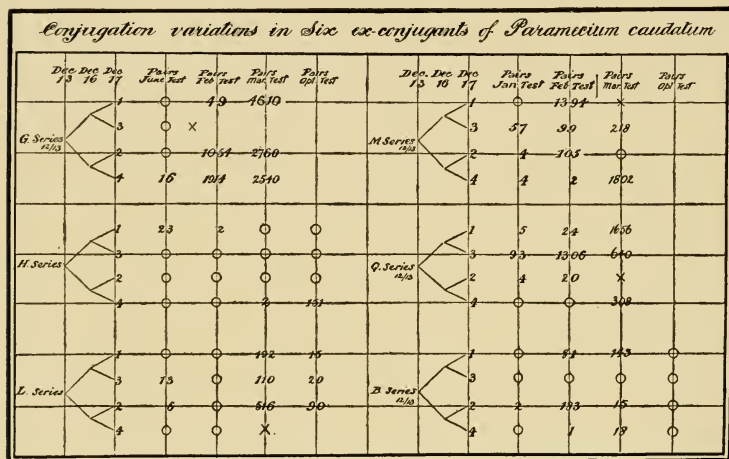 Conjugation variations in Six ex-conjugants of Paramecium caudatum
Dec 13 Dec 16 Dec 17 Pairs June Test Pairs Feb Test Pairs Mar. Test Pairs Apl Test
G. Series 12/13
1 O 49 4610
3 O X
2 O 1054 2760
4 16 1914 2540
H. Series
1 23 2 O O
3 O O O O
2 O O O O
4 O O 2 151
L. Series
1 O O 15
3 13 O 110 20
2 6 O 516 90
4 O O X
Dec. 13 Dec 16 Dec 17 Pairs Jan Test Pairs Feb Test Pairs Mar Test Pairs Apl Test
M Series 12/13
1 O 1394 x
3 57 99 218
2 4 105 O
4 4 2 1802
Q. Series 12/13
1 5 24 1656
3 93 1306 640
2 4 20 X
4 O O 308
B Series 12/13
1 O 143 O
3 O O O O
2 2 133 15 O
4 O 1 18 O